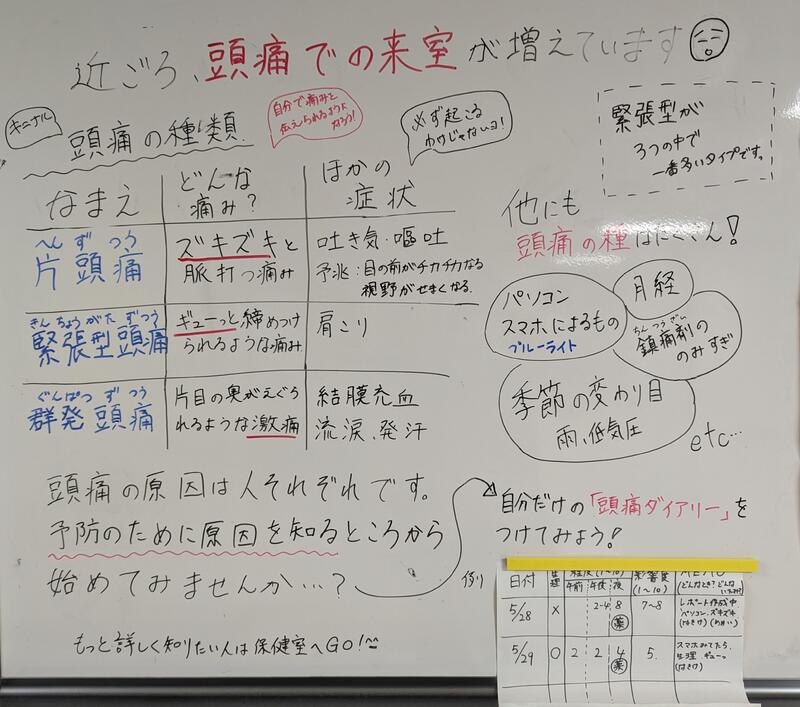 近ごろ、頭痛での来室が増えています
キニナル
頭痛の種類
自分で痛みを
伝えられるように
なろう!
必ず起こる
わけじゃないヨ!
緊張型が
3つの中で
一番多いタイプです。
なまえ
どんな
痛み?
ほかの
症状
へんずつう
片頭痛
ズキズキと
脈打つ痛み
吐き気・嘔吐
予兆:目の前がチカチカなる
視野がせまくなる
きんちょうがたずつう
緊張型頭痛
ギューっと締めつけ
られるような痛み
肩こり
ぐんぱつずつう
群発頭痛
片目の奥がえぐら
れるような激痛
結膜充血
流涙、発汗
他にも
頭痛の種はたくさん!
パソコン
スマホによるもの
ブルーライト
月経
ちんつうざい
鎮痛剤の
のみすぎ
季節の変わり目
雨、低気圧
etc…
頭痛の原因は人それぞれです。
予防のために原因を知るところから
始めてみませんか…?
もっと詳しく知りたい人は保健室へGO!
自分だけの「頭痛ダイアリー」を
つけてみよう!
例)
日付
生理
程度(1~10)
午前
午後
夜
影響度
(1~10)
MEMO
(どんなとき?どんな
5/28
×
2-4
8
薬
7~8
レポート作成中
パソコン、ズキズキ
(はきけ)(めまい)
5/29
○
2
2
4
薬
5
スマホみてたら
生理 ギューッ
(はきけ)